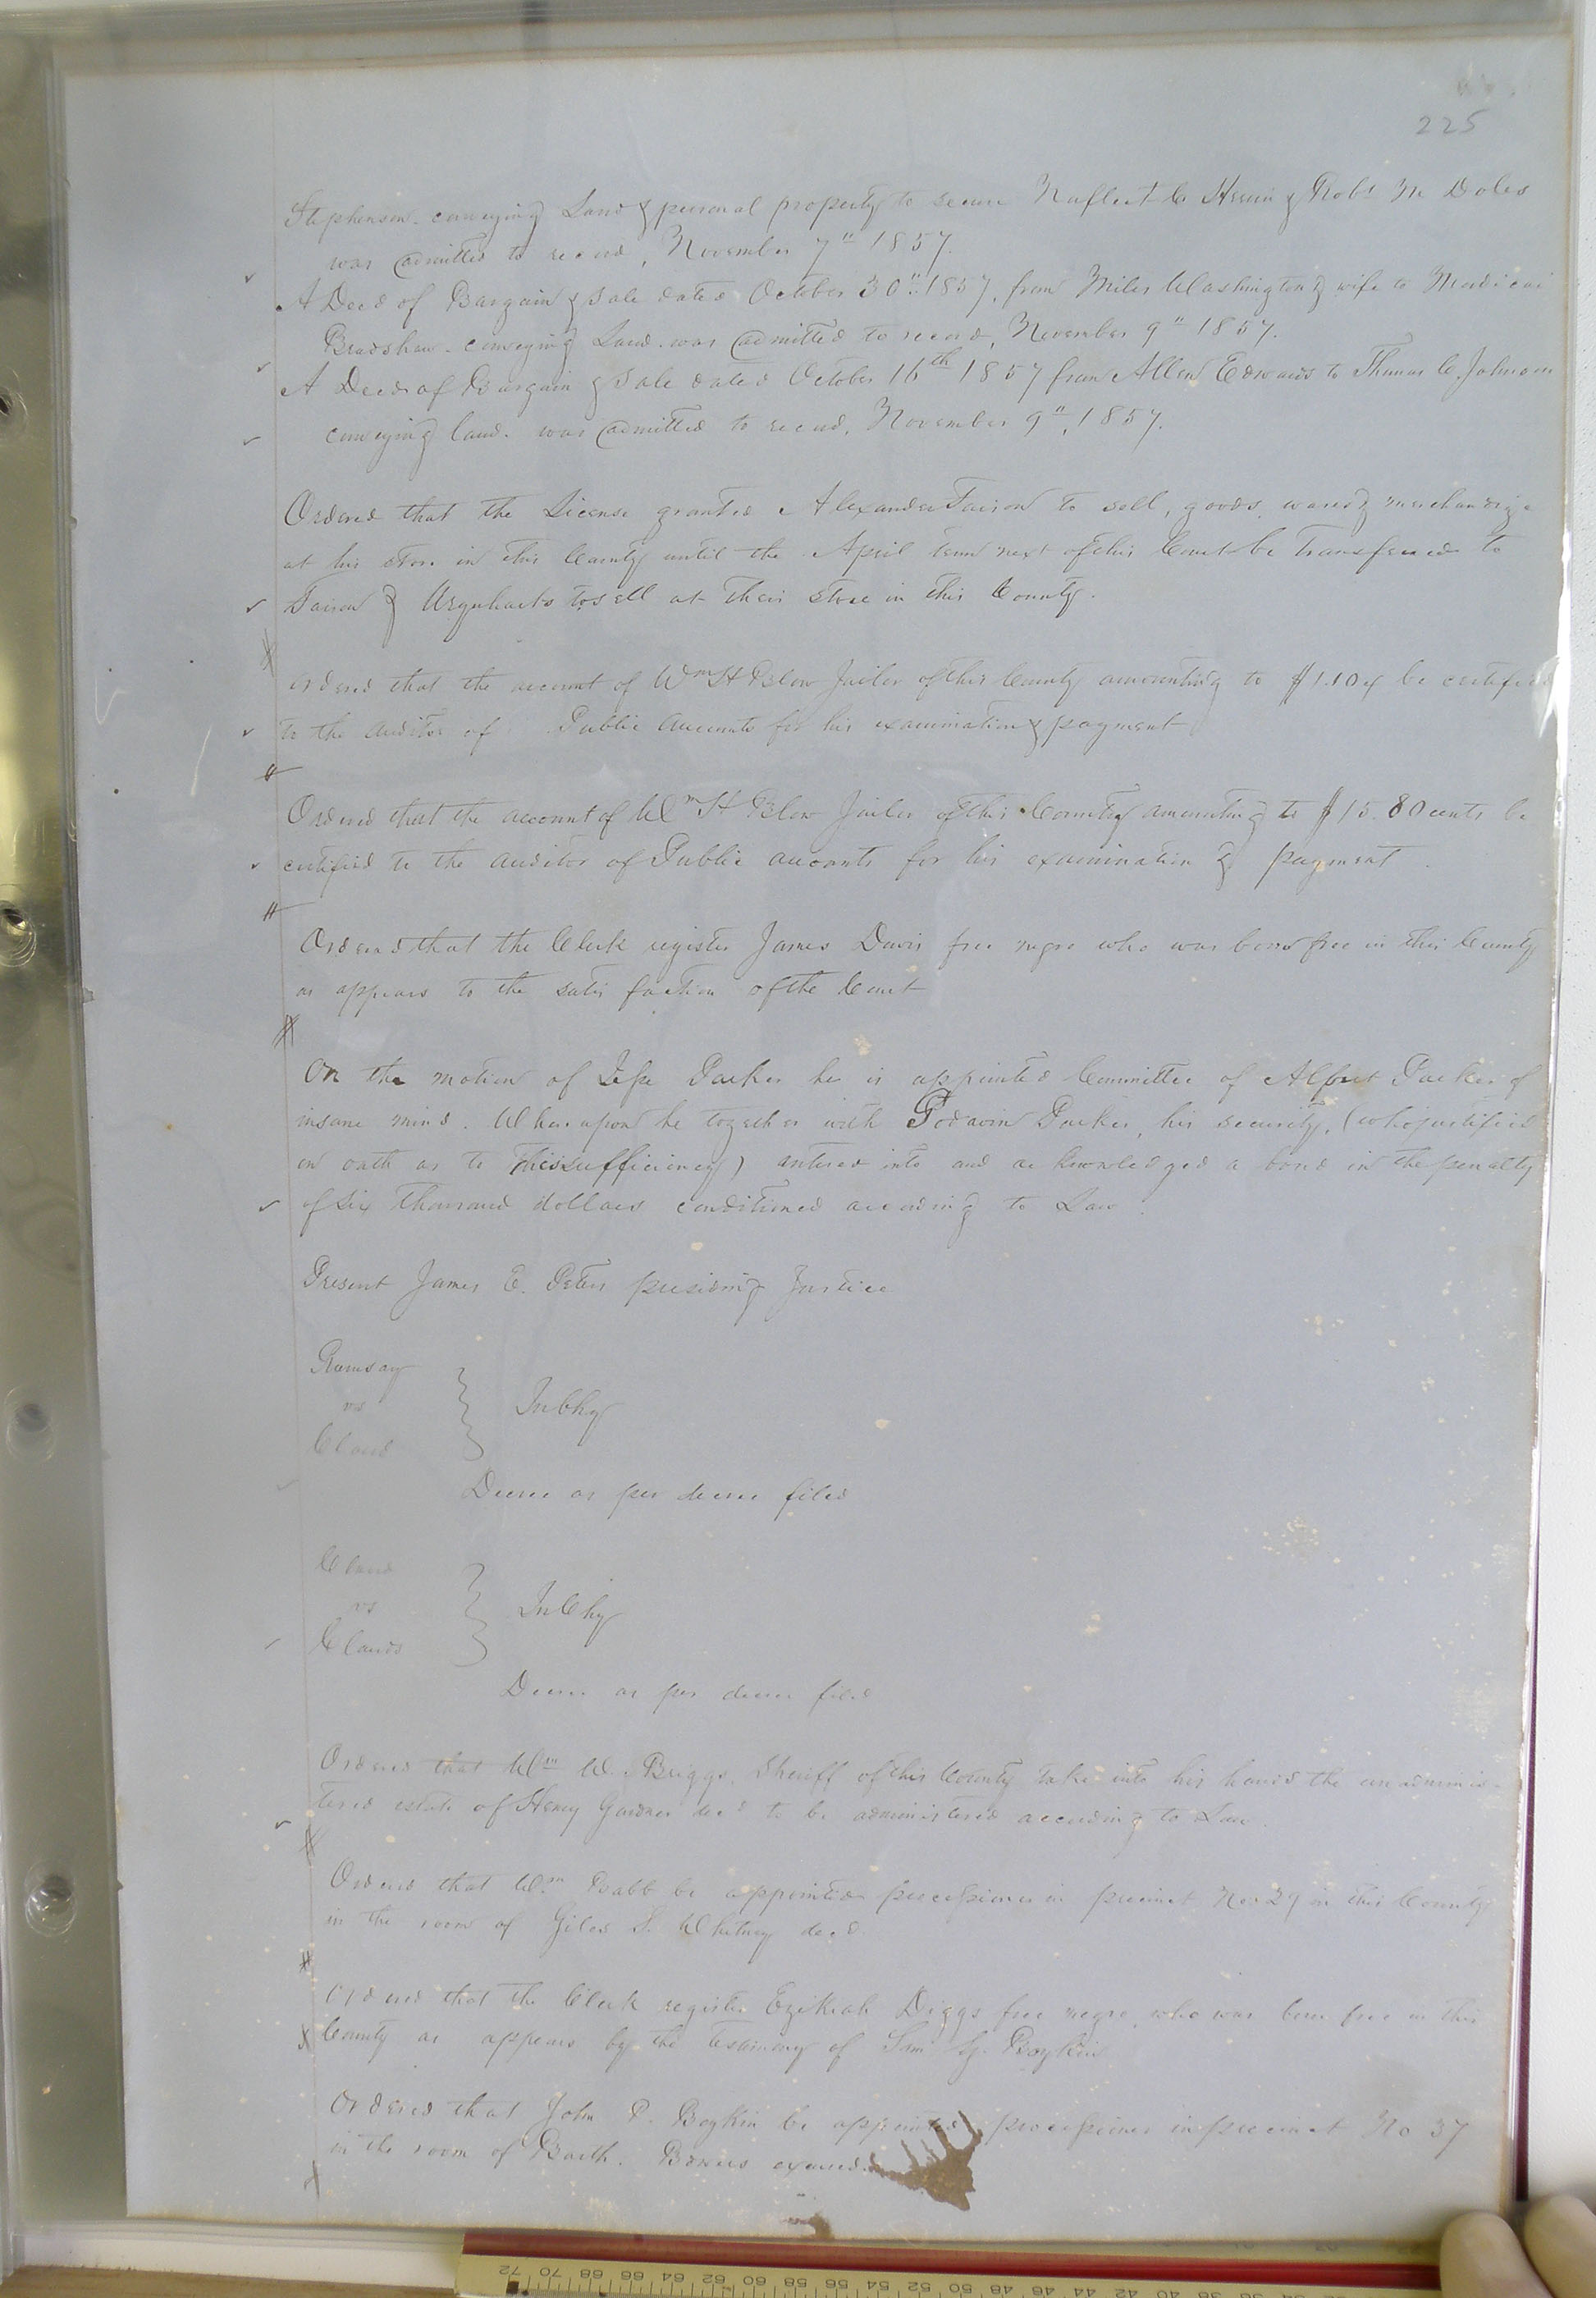 225
Stephenson conveying Land & personal property to secure C. & Robt M Doles
was admitted to record, November 7" 1857.
A Deed of Bargain & Sale dated October 30" 1857, from Miles Washington & wife to
Bradshaw conveying Land. was admitted to record, November 9" 1857.
A Deed of Bargain & Sale dated October 16th 1857 from Allen Edwards to Thomas C. Johnson
conveying land. was admitted to record, November 9", 1857.
Ordered that the License granted Alexander Faison to sell, goods, wares & merchandize
at his store in this County until the April term next of this Court be transferred to
Faison & Urquharts to sell at their store in this County.
Ordered that the account of Wm H Blow Jailor of this County amounting to $1.10 be certified
to the auditor of Public accounts for his examination & payment
Ordered that the account of Wm H Blow Jailor of this County amounting to $15.80 cents be
certified to the auditor of Public accounts for his examination & payment
Ordered that the Clerk register James Davis free negro who was born free in this County
as appears to the satisfaction of the Court
On the motion of Jesse Parker he is appointed Committee of Alfred Parker of
insane mind. Whereupon he together with Godwin Parker, his security, (who justified
on oath as to his sufficiency) entered into and acknowledged a bond in the penalty
of six thousand dollars conditioned according to Law.
Present James E. Peters presiding Justice
Ramsay
vs
Claud
In Chy
Decree as per decree filed
Claud
vs
Clauds
In Chy
Decree as per decree filed
Ordered that Wm W. Briggs, Sheriff of this County take into his hands the unadminis-
tered estate of Henry Gardner decd to be administered according to Law.
Ordered that Wm Babb be appointed processioner in precinct No 29 in this County
in the room of Giles S. Whitney decd
Ordered that the Clerk register Ezikiah Diggs free negro who was born free in this
County as appears by the testimony of Boykin
Ordered that John P. Boykin be appointed processioner in precinct No 37
in the room of Barth. excused.
72 70 68 66 64 62 60 58 56 54 52 50 48 46 44 42 40 38 36 34